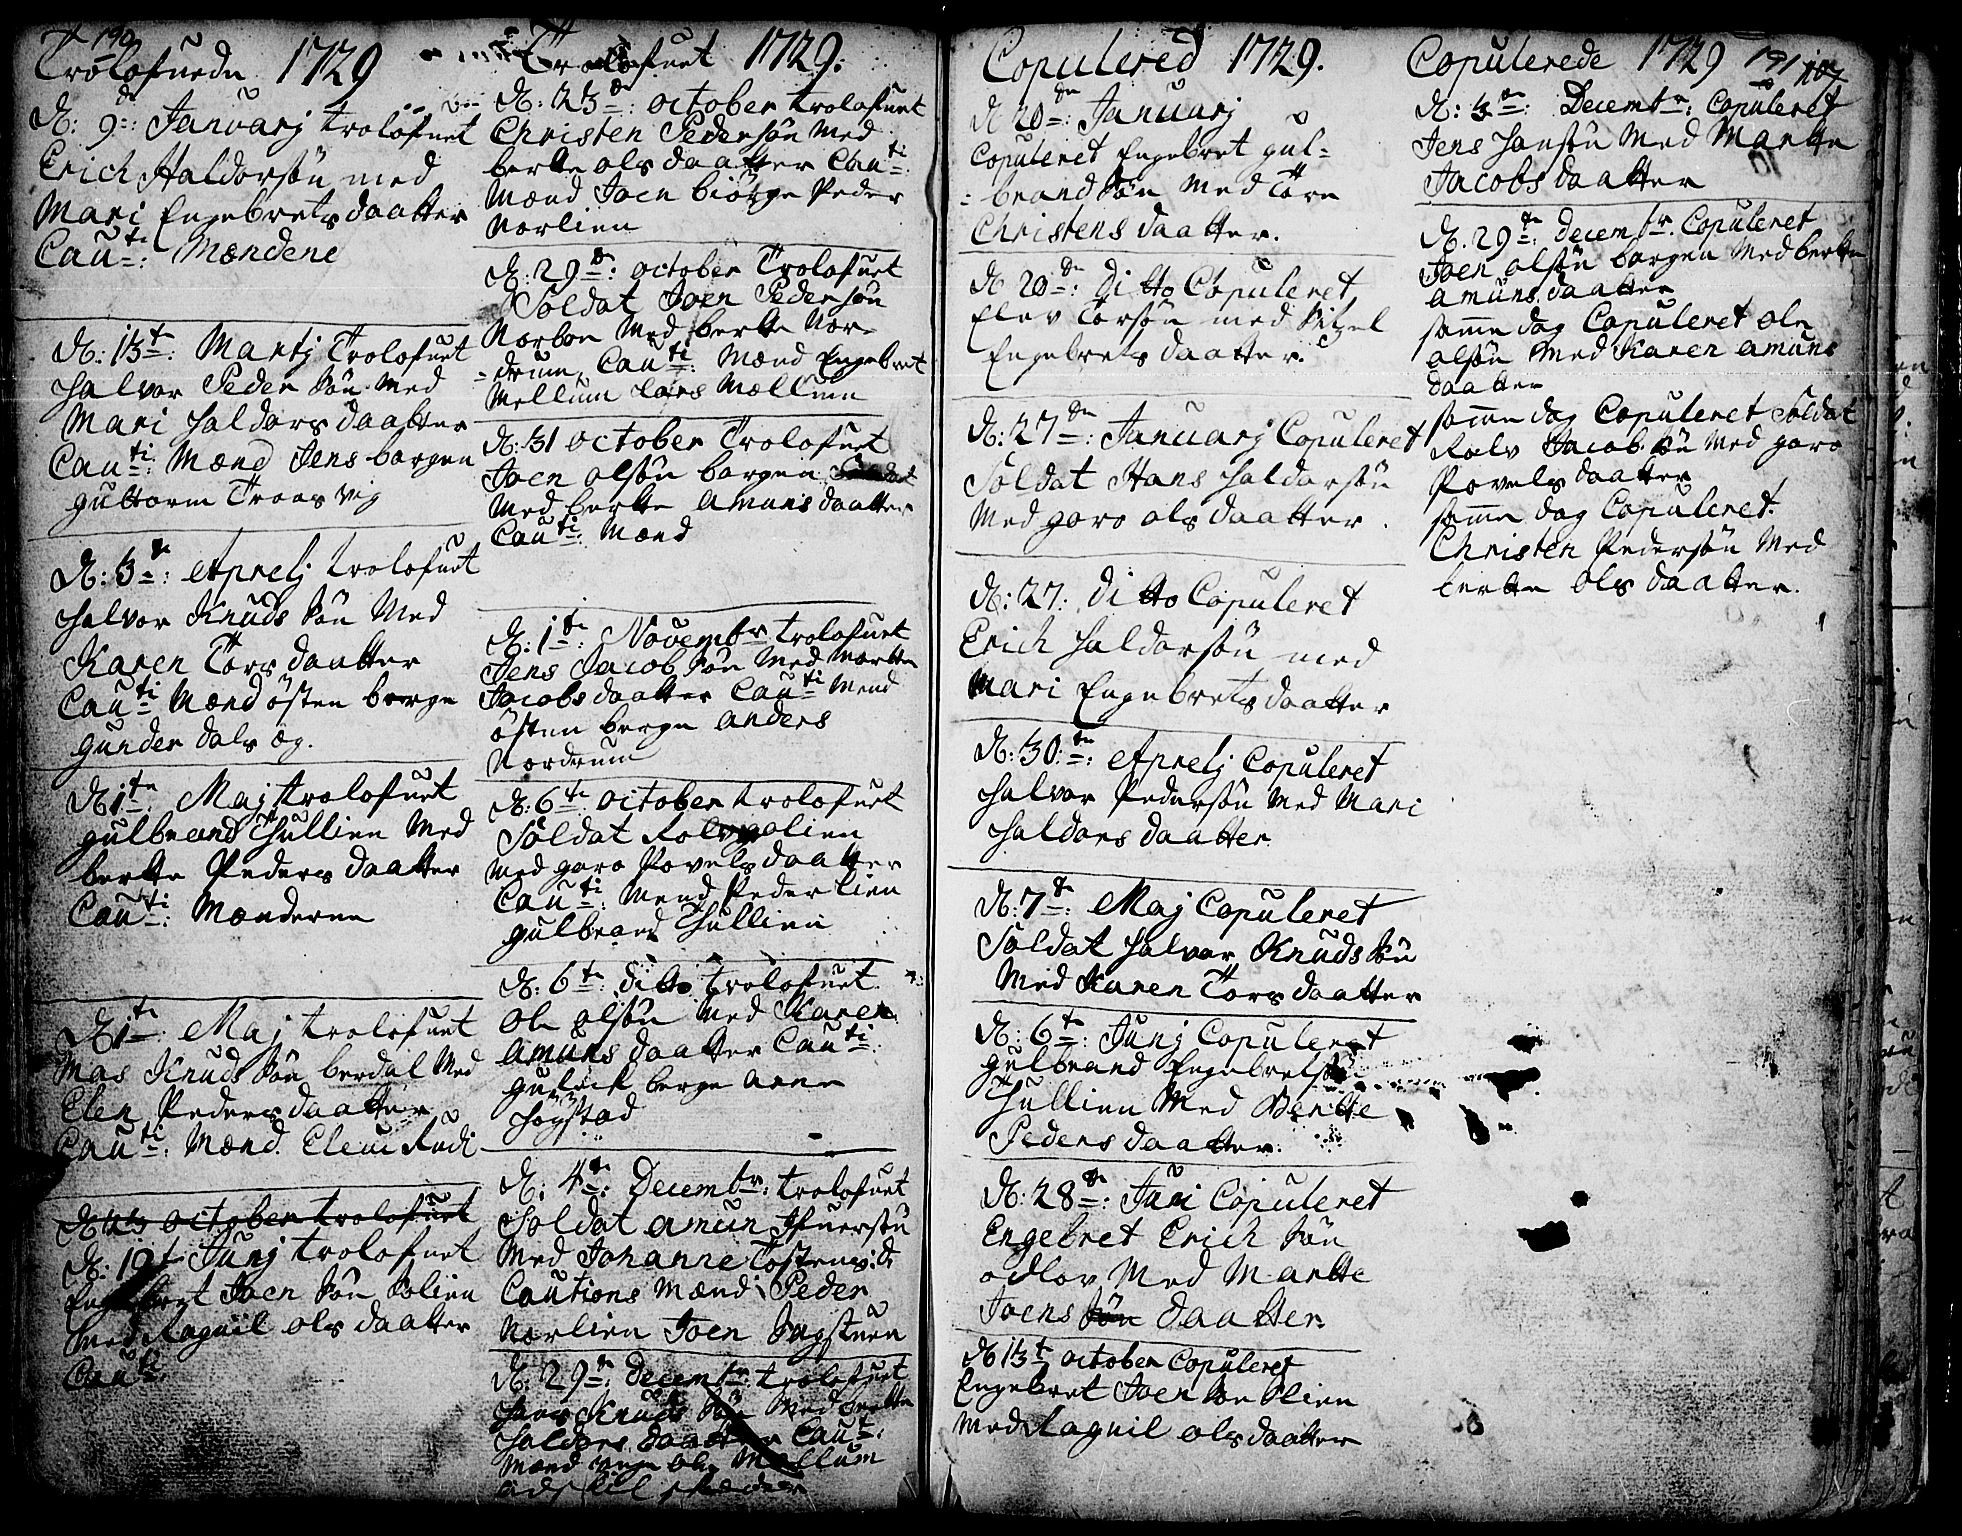 190
Trolofuede 1729
D: 9de: Januarj trolofuet
Erich Haldorsøn med
Mari Engebrets daatter
Cauti: Mændene
D: 13te: Martj Trolofuet
Halvor Peder søn Med
Mari Haldors daatter
Cauti: Mænd Jens borgen
guttorm Traasvig
D: 3de: Aprelj trolofuet
Halvor Knuds søn Med
Karen Tors daatter
Cauti Mænd østen berge
gunder dals øg.
D 1te: Maj trolofuet
gulbrand Thullien Med
berte Peders daatter
Cauti: Mænderne
D 1te: Maj trolofuet
Mas Knuds søn berdal Med
Elen Peders daatter
Cauti: Mænd. Eleui Rudi
D 23 october trolofuet
D: 19t Junj trolofuet
Engebret Joen søn Kolien
Med Ragnil ols daatter
Cauti:
Trolofuet 1729:
D: 23de: october trolofuet
Christen Pedersøn Med
berte ols daatter Cauti:
Mænd Joen biørge Peder
Norlien
D: 29de: october Trolofuet
Soldat Joen Pedersøn
Norbon Med berte Nor-
-drum, Cauti: Mænd Engebret
Mellum Lars Mællum
D: 31 october Trolofuet
Joen olsøn borgen
Med berte Amuns daatter
Cauti: Mænd
D: 1te: Novembr trolofuet
Jens Jacob søn Med Martte
Jacobs daatter Cauti Mend
østen berge anders
Nordrum
D: 6te: october trolofuet
Soldat Rolv olien
Med goro Povels daatter
Cauti: Mend Peder Lien
gulbrand Thullien
D: 6te: ditto trolofuet
Ole olsøn Med Karen
Amuns daatter Cauti:
gulick berge arne
Høgstad
D: 4te: Decembr: trolofuet
Soldat Amun Ifuersøn
Med Johanne Tostensd:
Cautions Mænd: Peder
Norlien Joen Bagstuen
D: 29de: Decembr: trolofuet
Hans Knuds søn Med berte
Haldors daatter Caut:
Mænd ole Mællum
Copulered 1729.
D 20de: Januarj
Copuleret Engebret gul-
-brand søn Med Tore
Christens daatter.
D 20de: Ditto Copuleret
Elev Torsøn med Sitzel
Engebrets daatter.
D: 27de: Januarj Copuleret
Soldat Hans Haldorsøn
Med goro ols daatter.
D: 27: Ditto Copuleret
Erich Haldorsøn med
Mari Engebrets daatter
D: 30:te: Aprelj Copuleret
Halvor Pedersøn Med Mari
Haldors daatter
D: 7de: Maj Copuleret
Soldat Halvor Knuds søn
Med Karen Tors daatter
D: 6te: Junj Copuleret
gulbrand Engebretsøn
Thullien Med Bertte
Peders daatter.
D: 28de: Juni Copuleret
Engebret Erich søn
odlov Med Martte
Joens søn daatter.
D 13t october Copuleret
Engebret Joen søn olien
Med Ragnil ols daatter
Copulerede 1729
191 107
D: 3de: Decembr: Copuleret
Jens Hansøn Med Marte
Jacobs daatter
D. 29de: decembr: Copuleret
Joen olsøn borgen Med berte
amuns daatter
samme dag Copuleret ole
olsøn Med Karen amuns
daatter
samme dag Copuleret Soldat
Rolv Jacob søn Med goro
Povels daatter
samme dag Copuleret.
Christen Pedersøn Med
berte ols daatter.